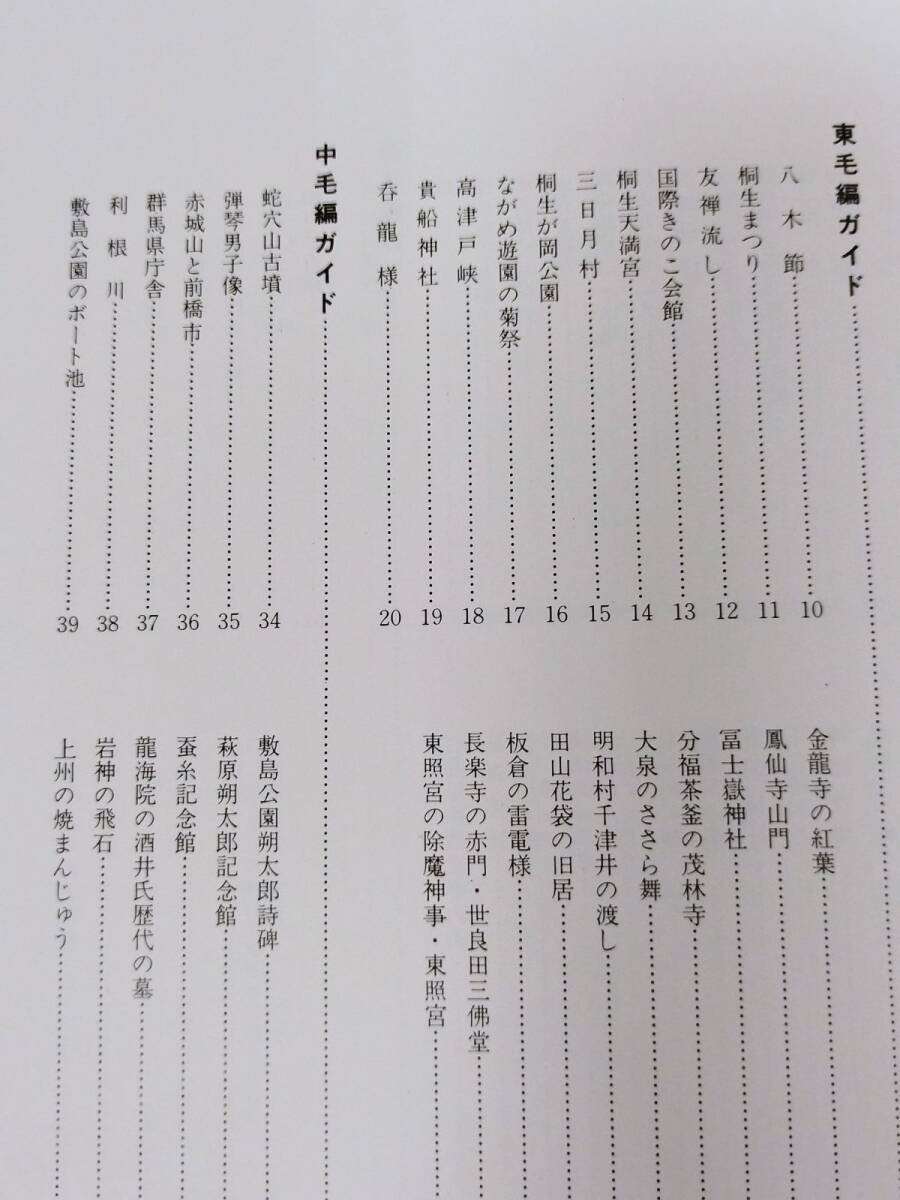 東毛編ガイド
八木節 10
桐生まつり 11
友禅流し 12
国際きのこ会館 13
桐生天満宮 14
三日月村 15
桐生が岡公園 16
ながめ遊園の菊祭 17
高津戸峡 18
貴船神社 19
呑龍様 20
金龍寺の紅葉
鳳仙寺山門
冨士嶽神社
分福茶釜の茂林寺
大泉のささら舞
明和村千津井の渡し
田山花袋の旧居
板倉の雷電様
長楽寺の赤門・世良田三佛堂
東照宮の除魔神事・東照宮
中毛編ガイド
蛇穴山古墳 34
弾琴男子像 35
赤城山と前橋市 36
群馬県庁舎 37
利根川 38
敷島公園のボート池 39
敷島公園朔太郎詩碑
萩原朔太郎記念館
蚕糸記念館
龍海院の酒井氏歴代の墓
岩神の飛石
上州の焼まんじゅう